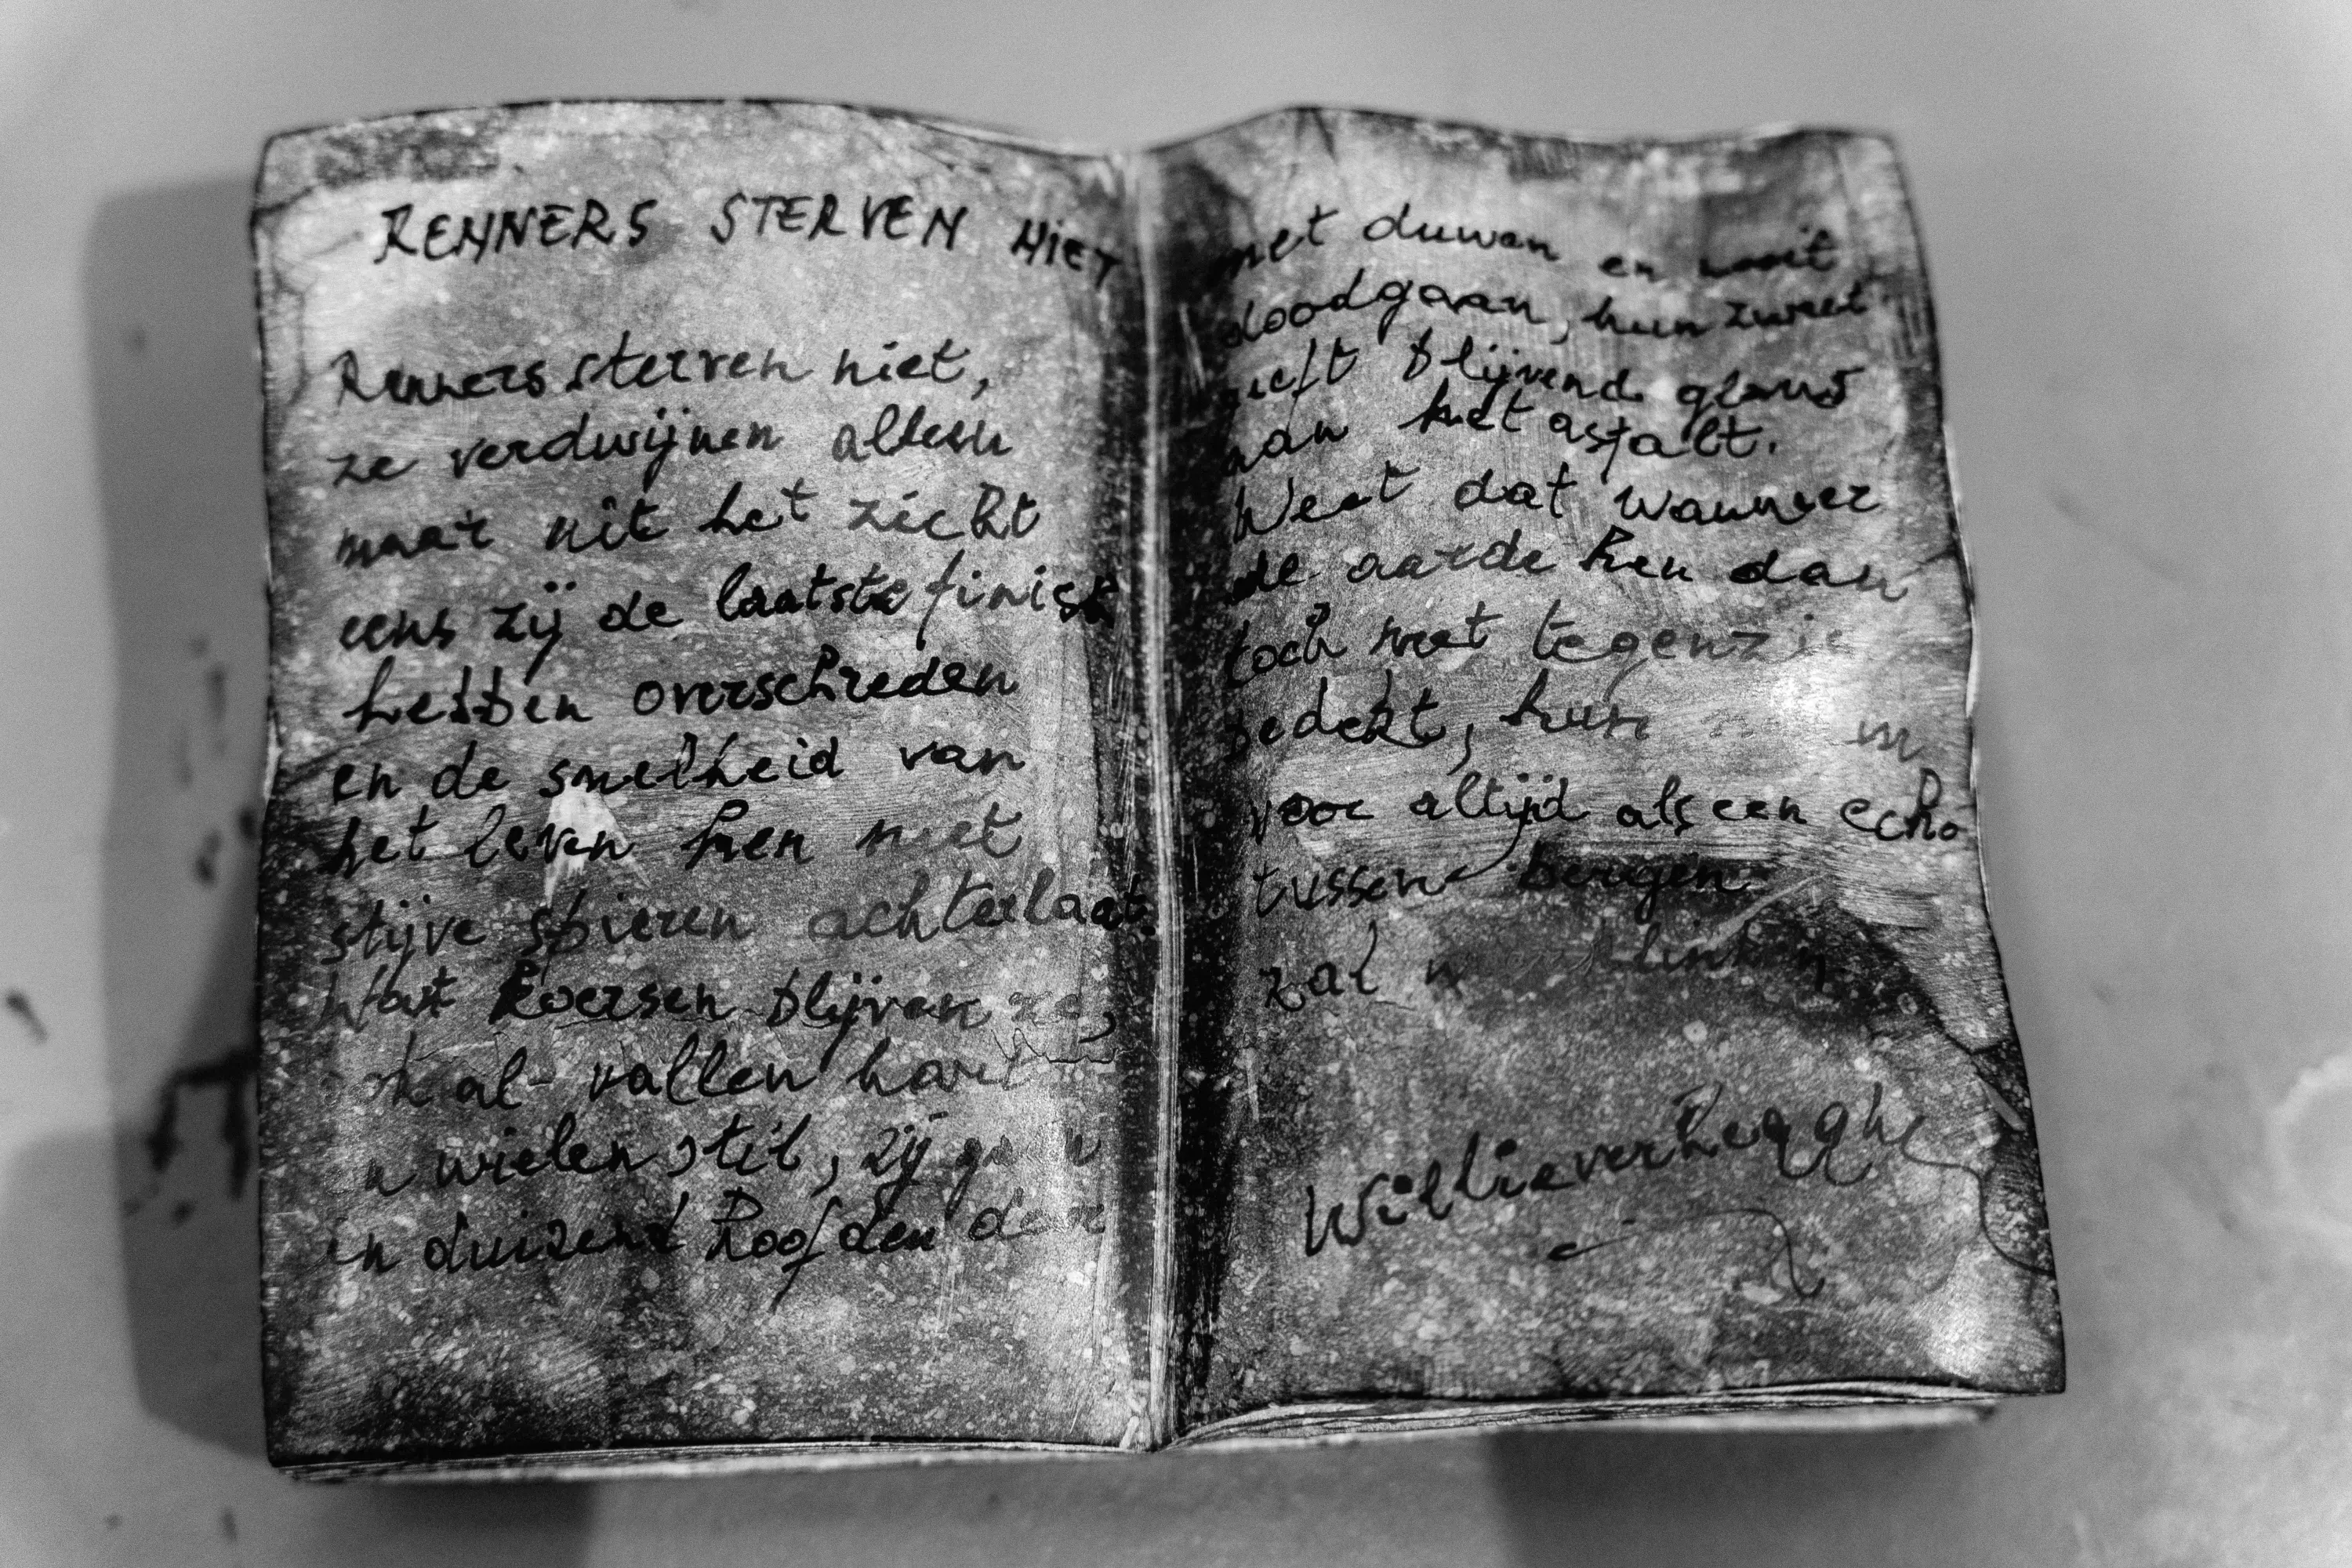 RENNERS STERVEN NIET
Renners sterven niet,
ze verdwijnen alleen
maar uit het zicht
eens zij de laatste finish
hebben overschreden
en de snelheid van
het leven hen met
stijve spieren achterlaat.
Want koersen blijven ze,
ook al vallen hart
en wielen stil, zij gaan
in duizend hoofden door
met duwen en nooit
doodgaan, hun zweet
geeft blijvend glans
aan het asfalt.
Weet dat wanneer
de aarde hen dan
toch met tegenzin
bedekt, hun
voor altijd als een echo
tussen bergen
zal weerklinken
Willie Verhegghe